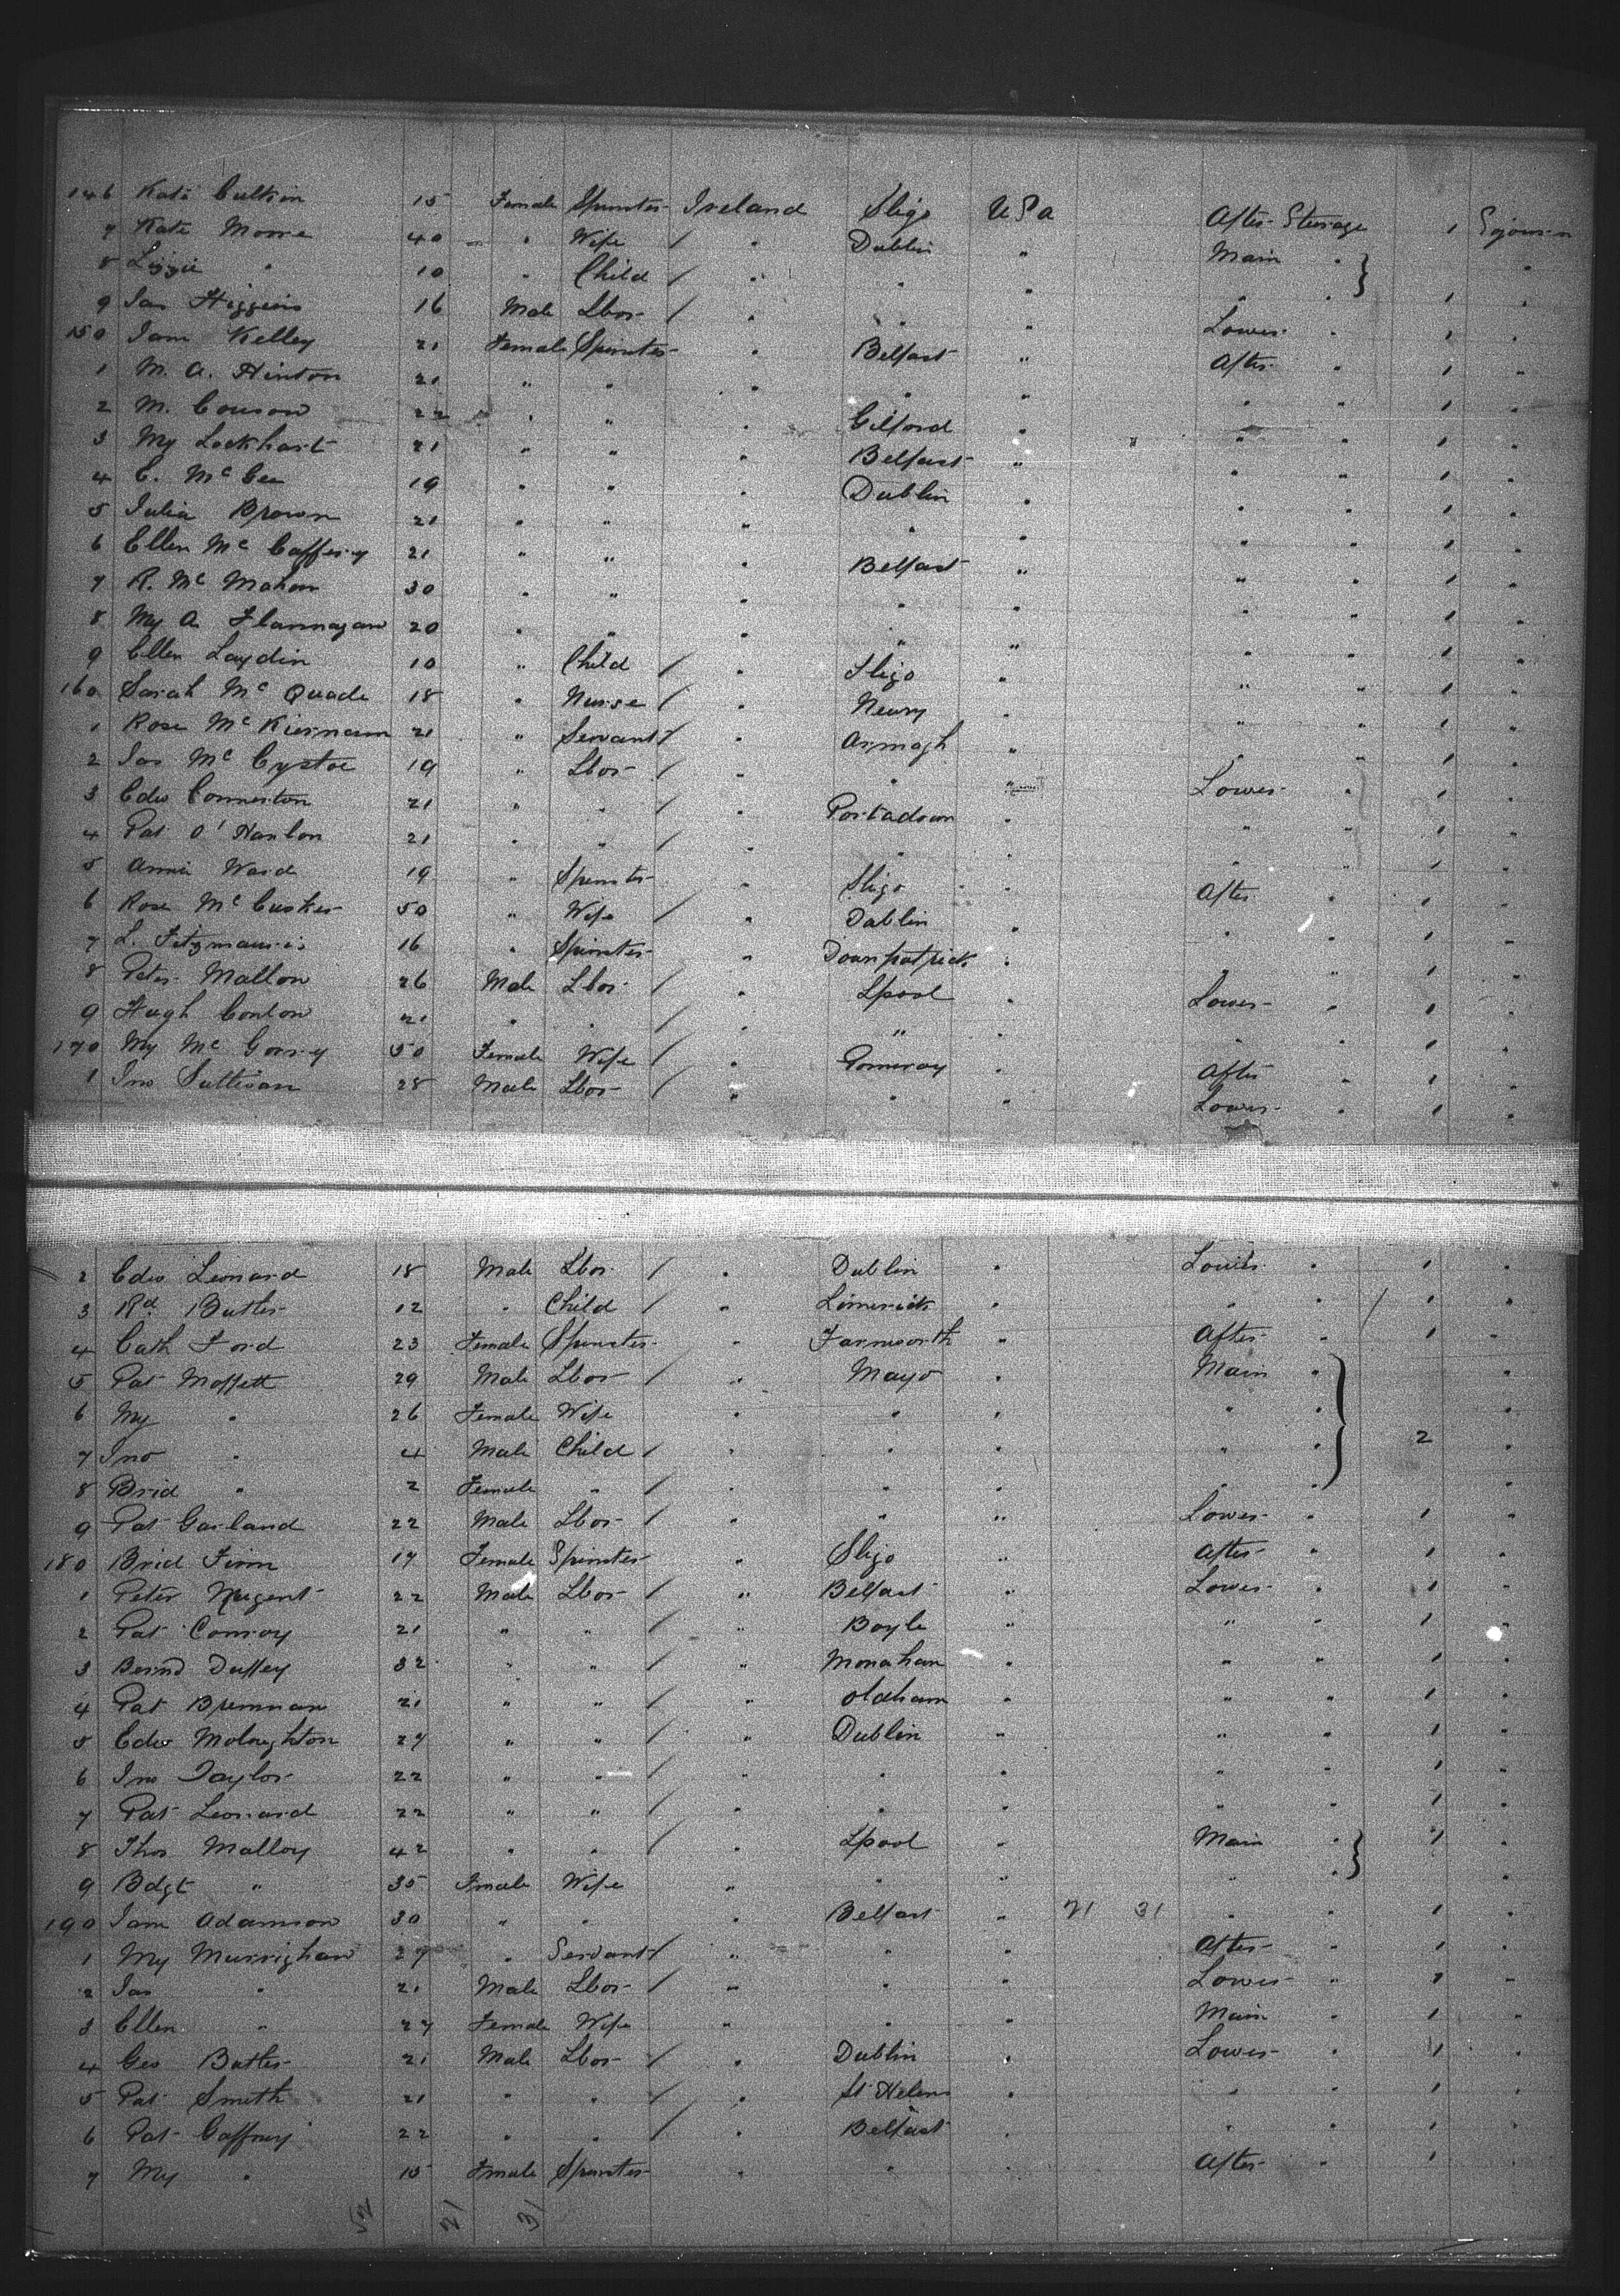 146 Kate Culkin 15 Female Spinster Ireland Sligo U S a After Steerage 1 Sojourn
7 Kate Moore 40 " Wife / " Dublin " Main " "
8 Lizzie " 10 " Child / " " " " " 1 "
9 Jas Higgins 16 Male Lbor / " " " Lower " 1 "
150 Jane Kelley 21 Female Spinster " Belfast " After " 1 "
1 M. A. Hinton 21 " " " " " " " 1 "
2 M. Couson 22 " " " Gilford " " " 1 "
3 My Lockhart 21 " " " Belfast " " " 1 "
4 C. McGee 19 " " " Dublin " " " 1 "
5 Julia Brown 21 " " " " " " " 1 "
6 Ellen Mc Caffery 21 " " " Belfast " " " 1 "
7 R. Mc Mahon 30 " " " " " " " 1 "
8 My A Flannagan 20 " " " " " " " 1 "
9 Ellen Laydin 10 " Child / " Sligo " " " 1 "
160 Sarah Mc Quade 18 " Nurse / " Newry " " " 1 "
1 Rose Mc Kiernan 21 " Servant / " Armagh " " " 1 "
2 Jas Mc 19 " Lbor / " " " Lower " 1 "
3 Edw Connerton 21 " " / " Portadown " " " 1 "
4 Pat O'Hanlon 21 " " / " " " " " 1 "
5 Annie Ward 19 " Spinster " Sligo " After " 1 "
6 Rose Mc Cusker 50 " Wife / " Dublin " " " 1 "
7 L. Fitzmauris 16 " Spinster " Downpatrick " " " 1 "
8 Peter Mallon 26 Male Lbor / " Lpool " Lower " 1 "
9 Hugh Conlon 21 " " / " " " " " 1 "
170 My Mc Gorry 50 Female Wife / " Pomeroy " After " 1 "
1 Jno Sullivan 28 Male Lbor / " " " Lower " 1 "
2 Edw Leonard 18 Male Lbor / " Dublin " Lower " 1 "
3 Rd Butler 12 " Child / " Limerick " " " / 1 "
4 Cath Ford 23 Female Spinster " Farnworth " After " 1 "
5 Pat Moffett 29 Male Lbor / " Mayo " Main " "
6 My " 26 Female Wife " " " " " "
7 Jno " 4 Male Child / " " " " " 2 "
8 Brid " 2 Female " / " " " " " "
9 Pat Garland 22 Male Lbor / " " " Lower " 1 "
180 Brid Finn 17 Female Spinster " Sligo " After " 1 "
1 Peter Nugent 22 Male Lbor / " Belfast " Lower " 1 "
2 Pat Conroy 21 " " / " Boyle " " " 1 "
3 Bernd Duffey 32 " " / " Monahan " " " 1 "
4 Pat Brennan 21 " " / " Oldham " " " 1 "
5 Edw Moloughton 27 " " / " Dublin " " " 1 "
6 Jno Taylor 22 " " / " " " " " 1 "
7 Pat Leonard 22 " " / " " " " " 1 "
8 Thos Malloy 42 " " / " Lpool " Main " 1 "
9 Bdgt " 35 Female Wife " " " " "
190 Jane Adamson 30 " " " Belfast " 21 31 " " 1 "
1 My Murrighan 27 " Servant / " " " After " 1 "
2 Jas " 21 Male Lbor / " " " Lower " 1 "
3 Ellen " 27 Female Wife " " " Main " 1 "
4 Geo Butler 21 Male Lbor / " Dublin " Lower " 1 "
5 Pat Smith 21 " " / " St Helens " " " 1 "
6 Pat Caffrey 22 " " / " Belfast " " " 1 "
7 My " 15 Female Spinster " " " After " 1 "
52 21 31